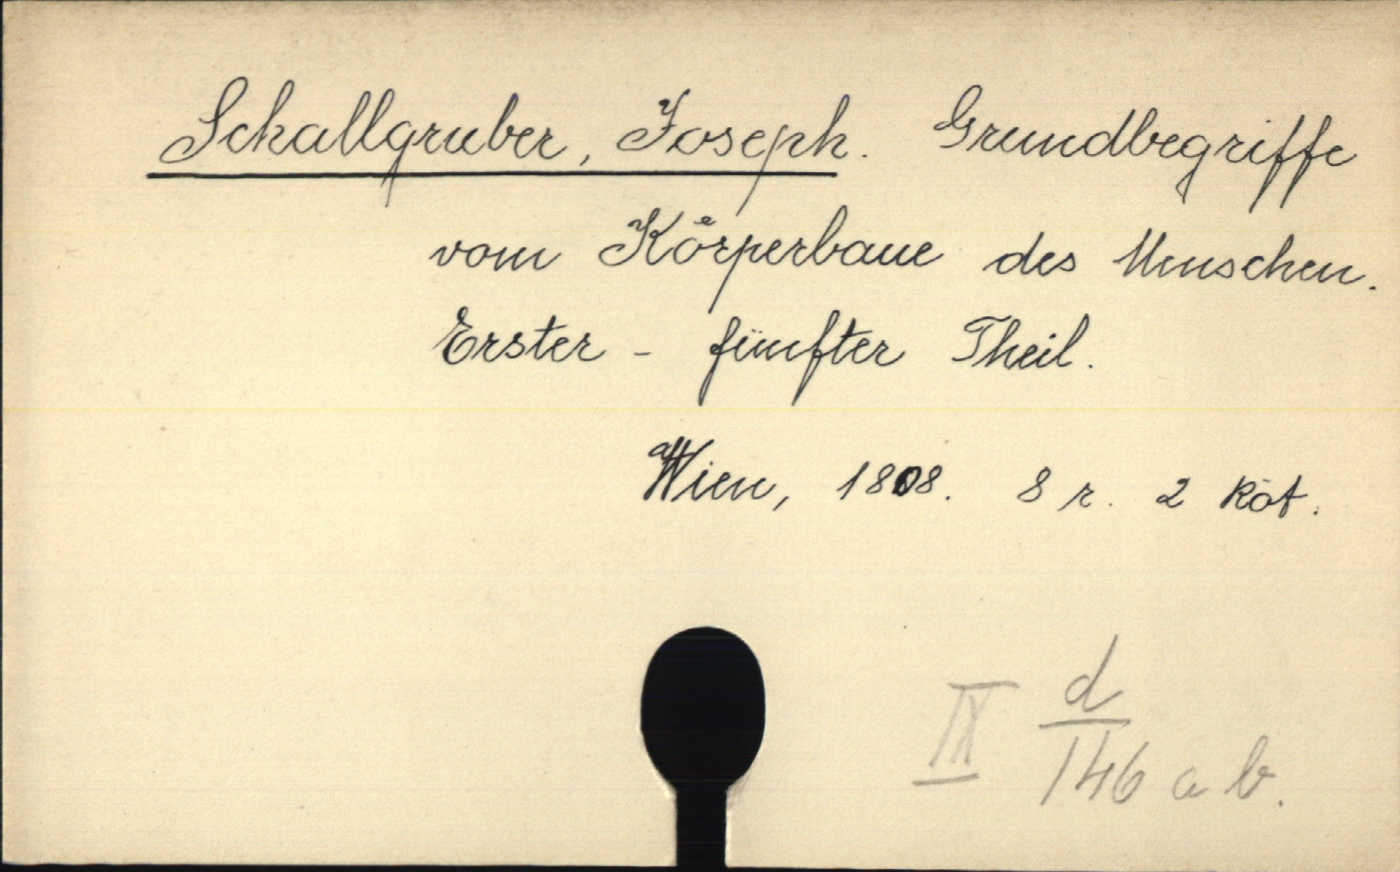 Schallgruber, Joseph. Grundbegriffe
vom Körperbaue des Menschen.
Erster - fünfter Theil.
Wien, 1808. 8 r. 2 köt.
IX d
146 a b.